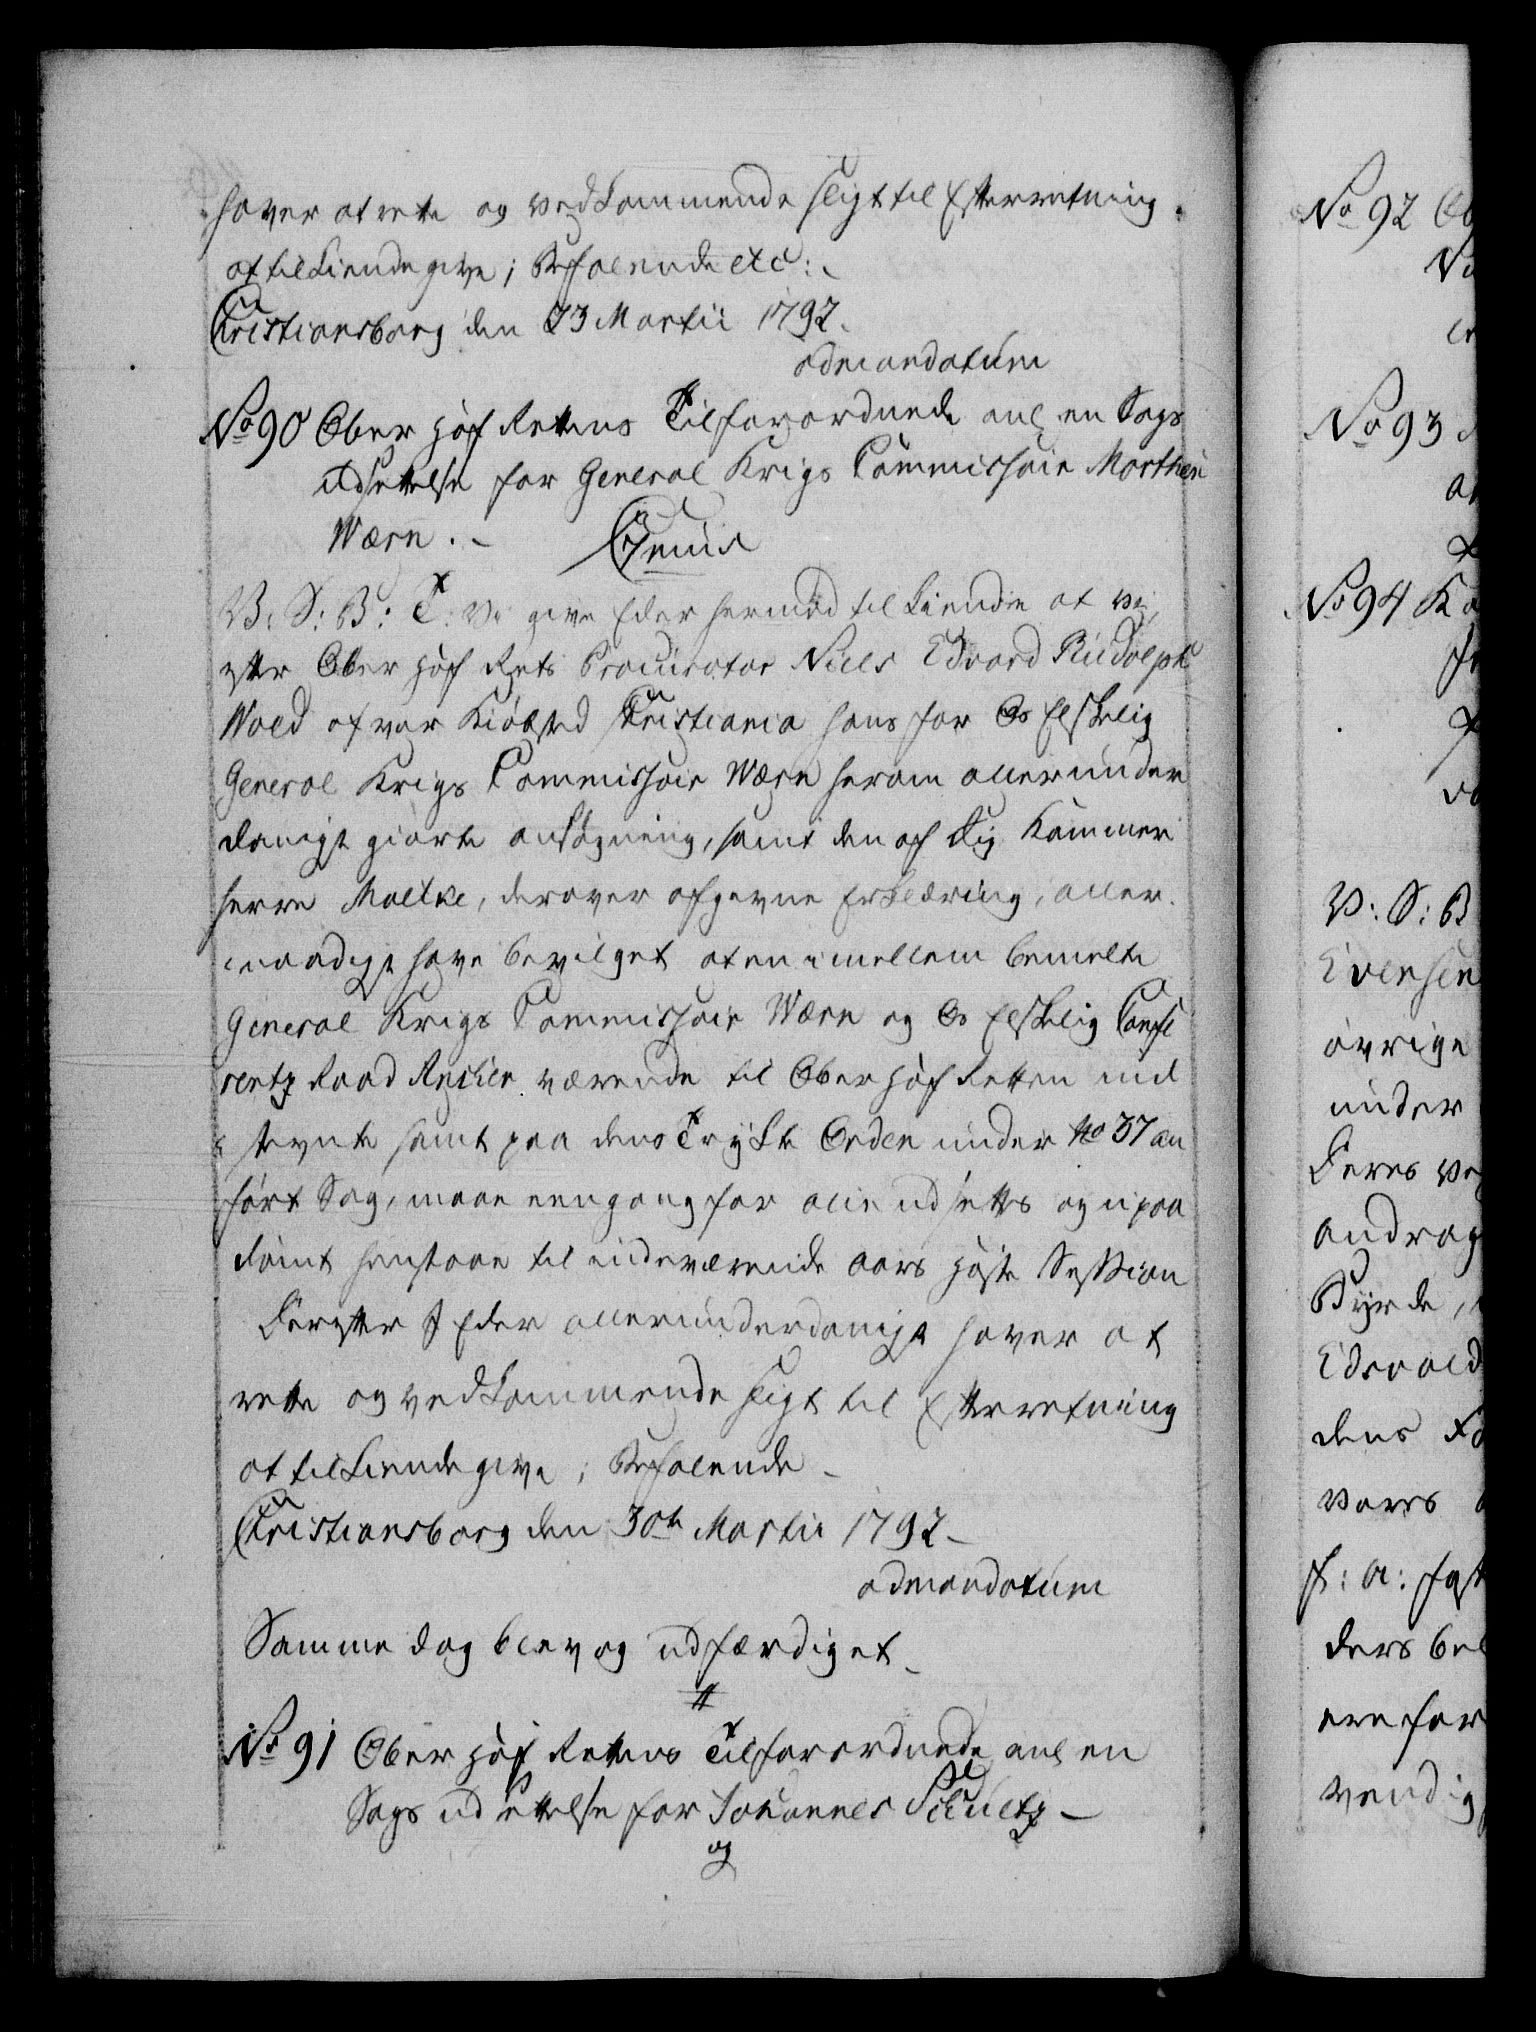 haver at rette og vedkommende sligt til Efterretning
at tilkiendegive; Befalende etc:
Christiansborg den 23 Martii 1792.
admandatum
No 90 Ober Hof Rettens Tilforordnede anl en Sags
udsettelse for General Krigs Commissair Morthen
Wærn. - Genius
V: S: B: T: Vi give Eder hermed tilkiende at Vi,
efter Ober Hof Rets Procurator Niels Edvard Rudolph
Wold af vor Kiøbsted Christiania hans for Os Elskelig
General Krigs Commissair Wærn herom allerunder
danigst giorte ansøgning, samt den af Dig Kammer
herre Moltke, derover afgevne Erklæring, aller
naadigst have bevilget at en imellem bemelte
General Krigs Commissair Wærn og Os Elskelig Confe
rentz Raad Ancher værende til Ober Hof Retten ind
stevnte samt paa dens Trykte Orden under No 37 an
ført Sag, maae eengang for alle udsettes og upaa
dømt henstaae til indeværende aars Høste Session
Derefter I Eder allerunderdanigst haver at
rette og vedkommende sligt til Efterretning
at tilkiendegive; Befalende -
Christiansborg den 30te Martii 1792 -
admandatum
Samme dag blev og udfærdiget -
No 91 Ober Hof Rettens Tilforordnede anl en
Sags udsettelse for Johannes Schultz -
og
No 92
No 93
No 94
V: S: B
Evensen
øvrige
under
Deres
andrag
Byrde,
Edsvold
dens
vores
f: a:
ders
ere for
vendig